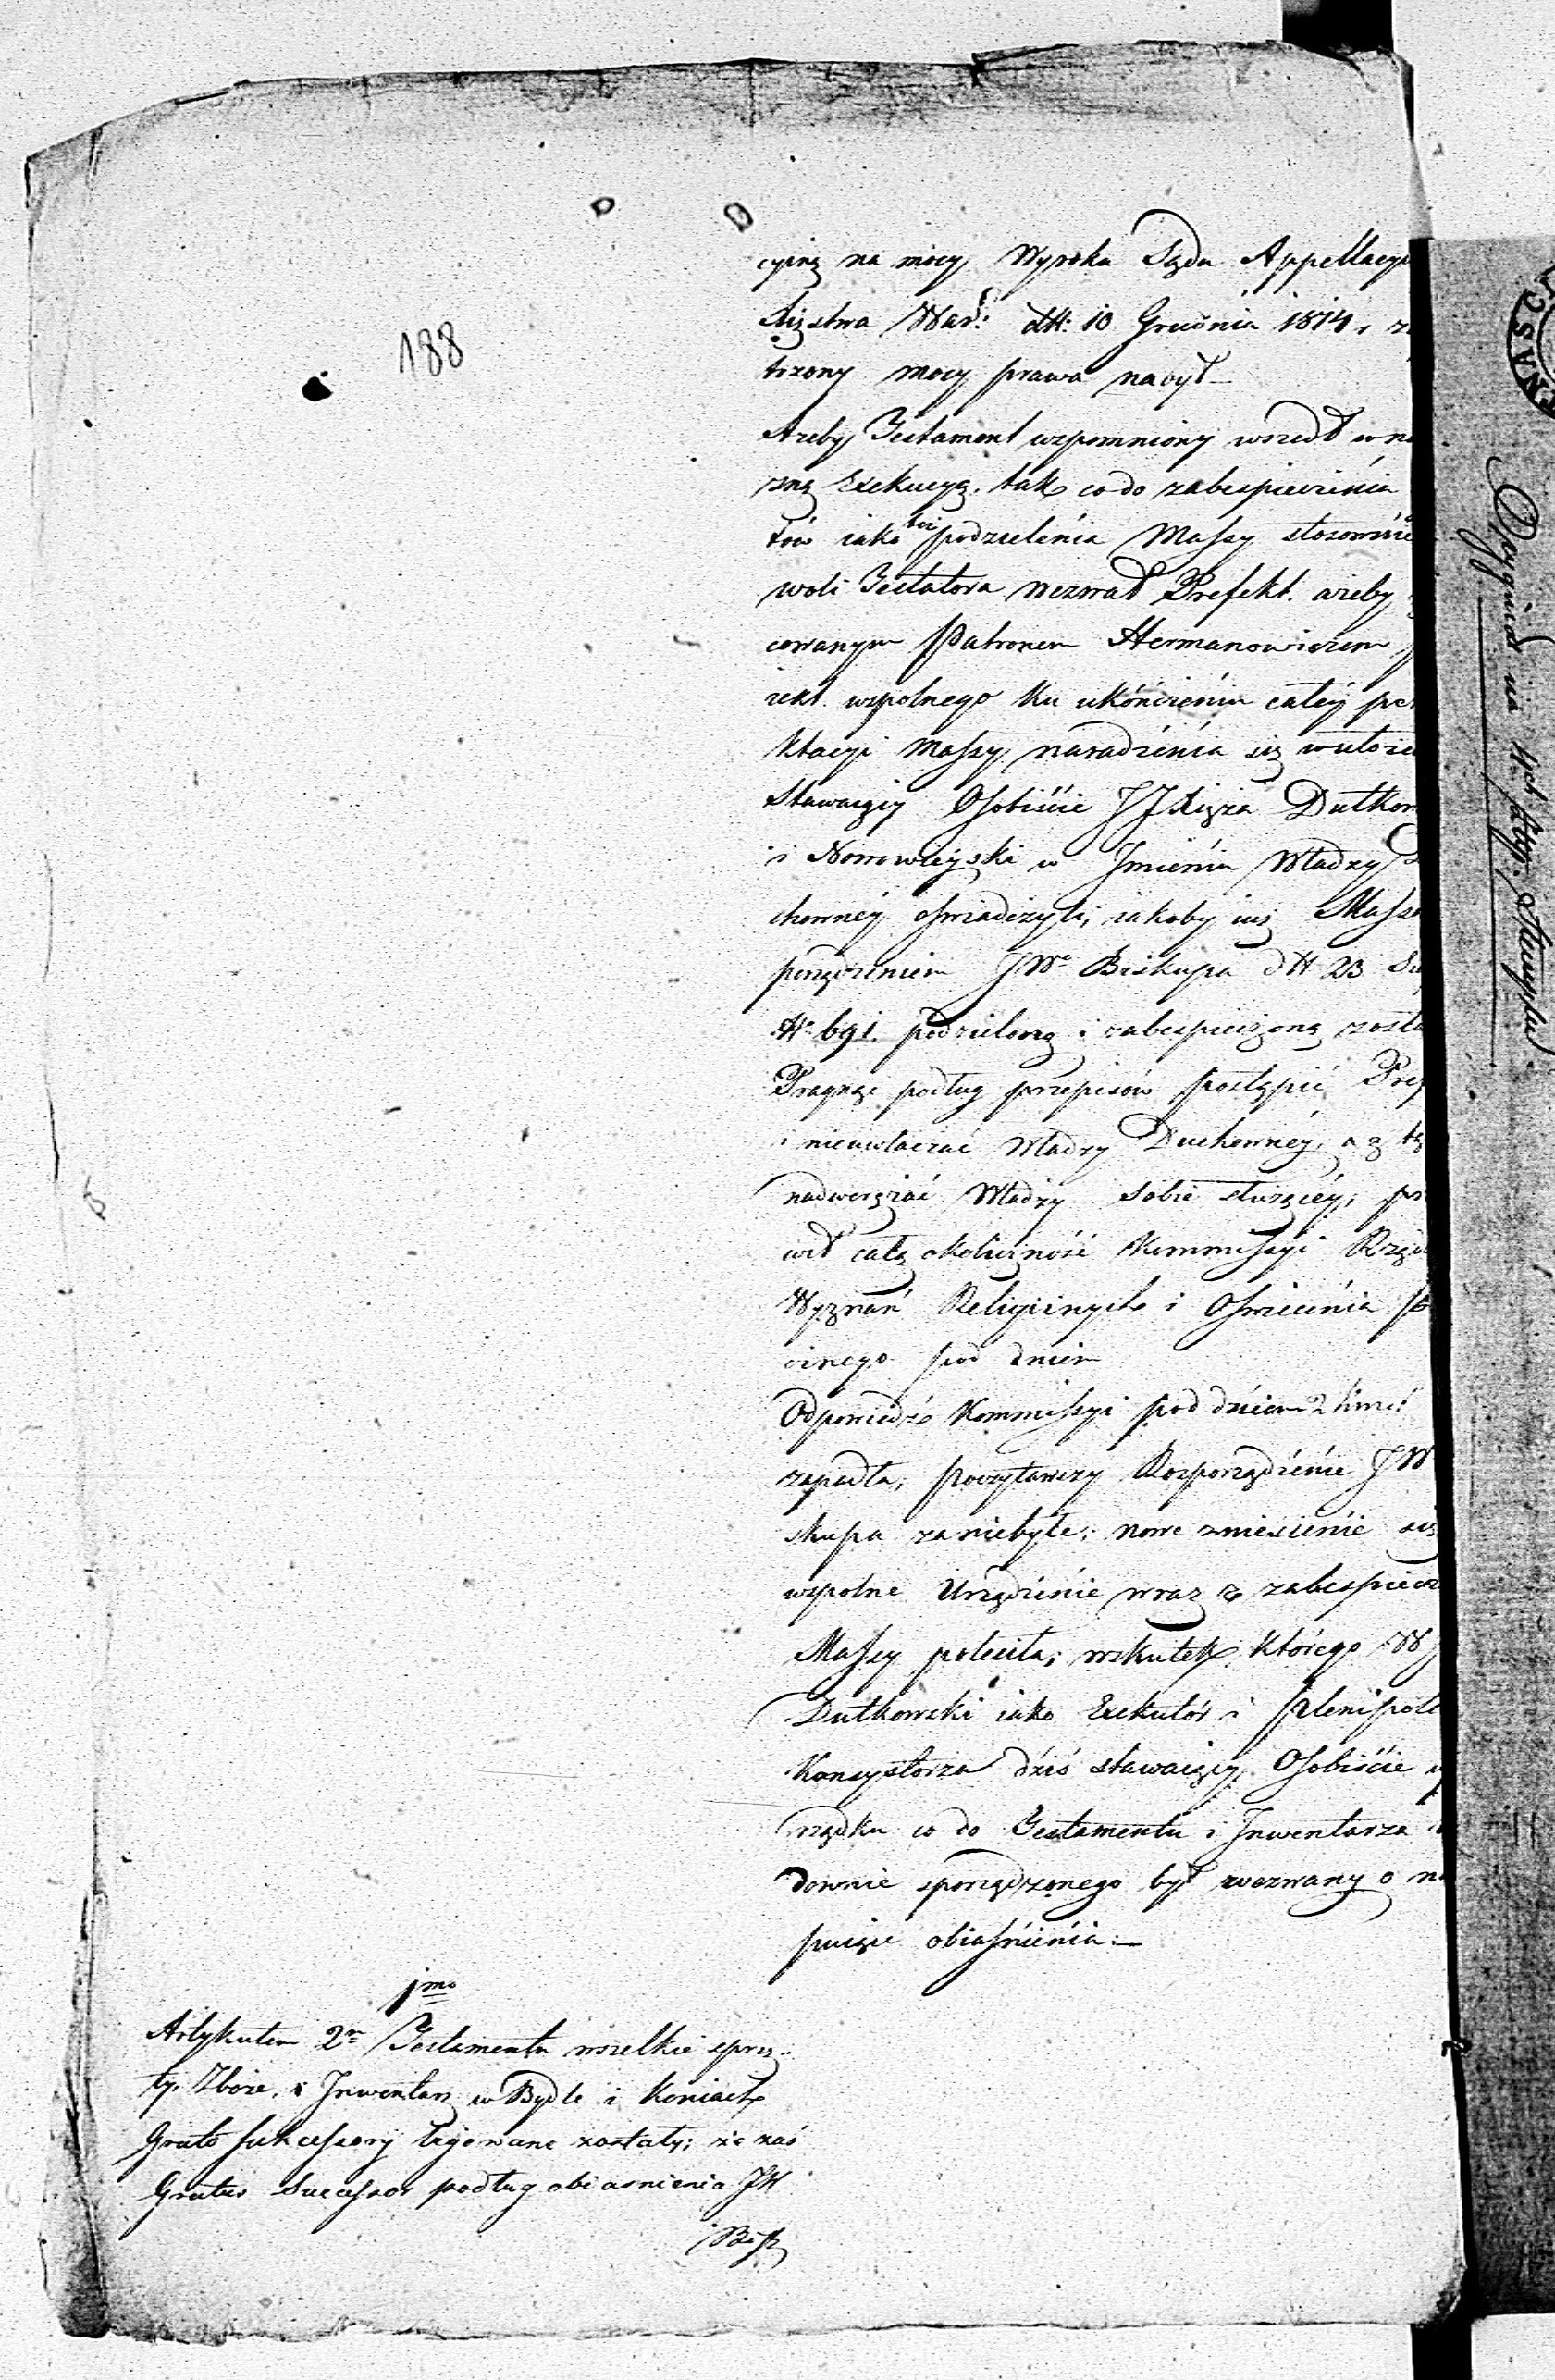 188
cyiną na mocy Wyroku Sądu Appellacyi
Xięstwa War: dtt: 10 Grudnia 1814 r
trzony mocy prawa nabył
Ażeby Testament wzpomniony wszedł w
zną Exekucyą, tak co do zabespieczenia
tów iako też podzielenia Massy stosownie
woli Testatora wezwał Prefekt. ażeby
cowanym Patronem Hermanowiczem
iekt wspolnego ku ukończeniu całey per
ktacyi Massy naradzenia się w ułoże
Stawaiący Osobiście JJ Xięża Dutkow
i Nowowieyski w Jmieniu Władzy
chowney oświadczyli, iakoby iuż Massa
porządzeniem JWo Biskupa dtt 23
N. 691. podzieloną i zabespieczoną zosta
Pragnąc podług przepisów postąpić Pref
i nieuwłaczać Władzy Duchowney, a z
nadwerężać Władzy Sobie służącey,
wił całą okoliczność Kommissyi Rząd
Wyznań Religiinych i Oświecenia
cznego pod dniem
Odpowiedź Kommissyi pod dniem 2
zapadła, poczytawszy Rozporządzenie JW
skupa za niebyłe; nowe zniesienie się
wspolne Urządzenie wraz z zabespiecz
Massy poleciła; wskutek którego W J
Dutkowski iako Exekutor i Plenipote
Konsystorza dziś stawaiący Osobiście
rządku co do Testamentu i Jnwentarza
downie sporządzonego był wezwany o na
puiące obiaśnienia:
1mo
Artykułem 2m Testamentu wszelkie sprzę-
ty, Zboże, i Jnwentarz w Bydle i Koniach
Grato Sukcessory legowane zostały; że zaś
Gratus Sucessor podług obiasnienia JW
Bisk
Dzygnal na 4ch Stemplu